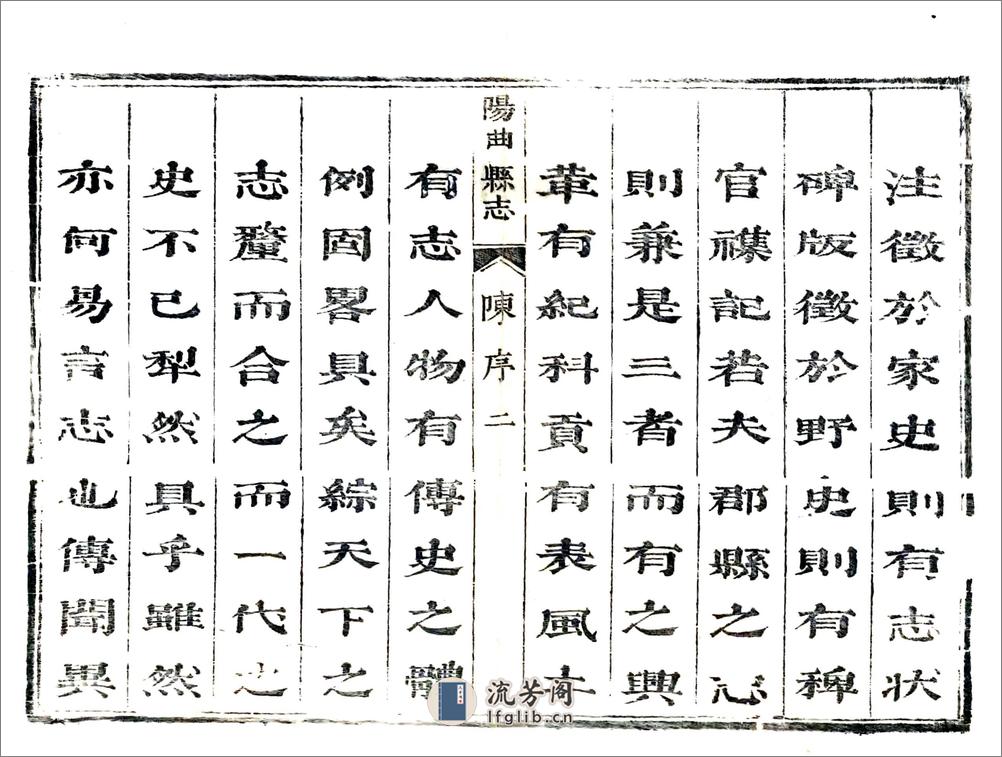 注徵於家史則有志狀
碑版徵於野史則有稗
官襍記若夫郡縣之志
則兼是三者而有之典
章有紀科貢有表風土
陽曲縣志 陳序 二
有志人物有傳史之體
例固畧具矣綜天下之
志釐而合之而一代之
史不已犁然具乎雖然
亦何易言志也傳聞異
流芳阁
lfglib.cn